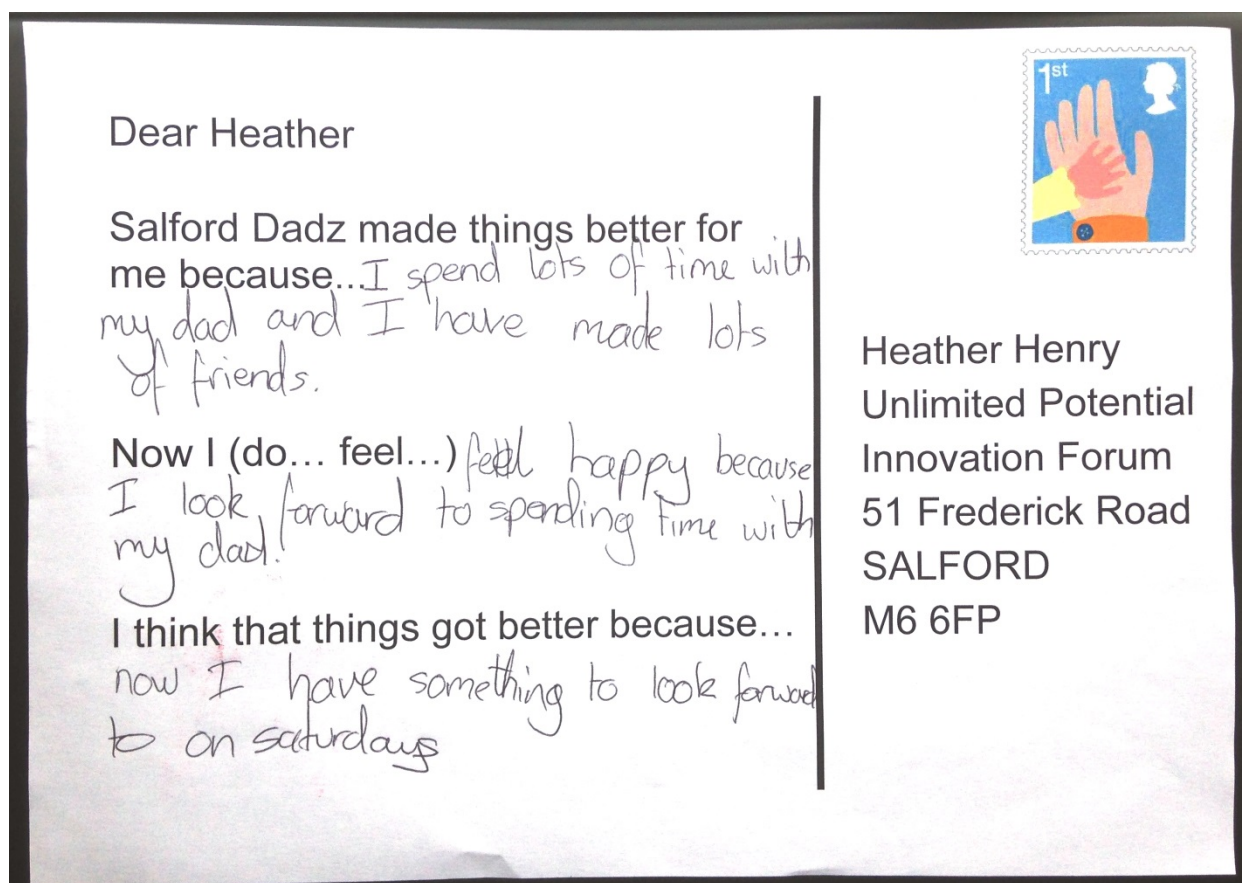 1st
Dear Heather
Salford Dadz made things better for
me because...I spend lots of time with
my dad and I have made lots
of friends.
Now I (do... feel...) feel happy because
I look forward to spending time with
my dad!
I think that things got better because...
now I have something to look forward
to on saturdays
Heather Henry
Unlimited Potential
Innovation Forum
51 Frederick Road
SALFORD
M6 6FP